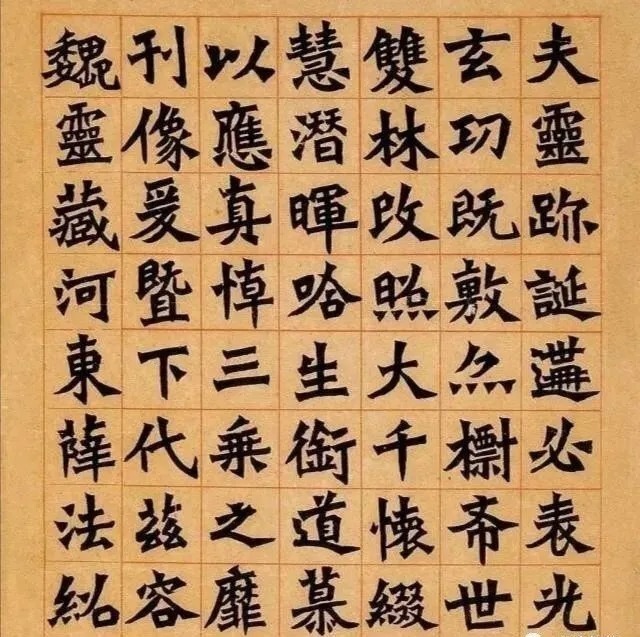 夫靈跡誕遘必表光
玄功既敷亦標希世
雙林改照大千懷綴
慧潛暉哈生銜道慕
以應真悼三乘之靡
刊像爰暨下代茲容
魏靈藏河東薛法紹